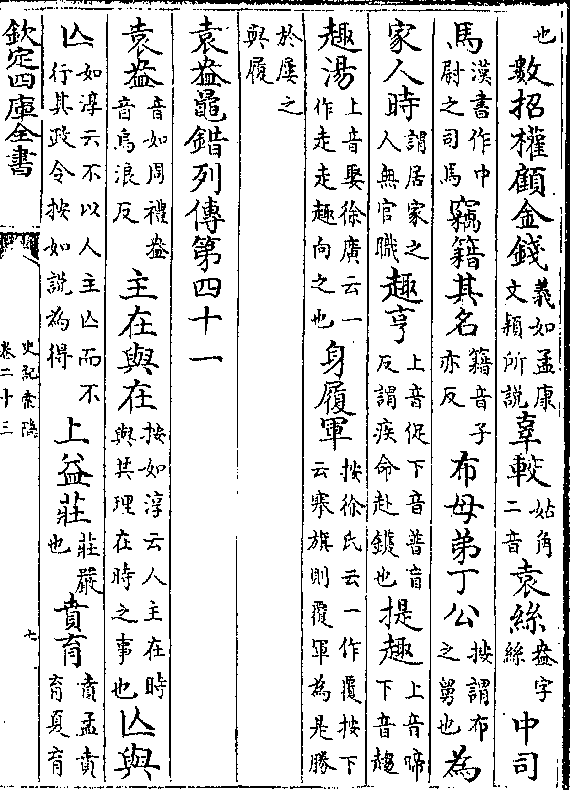 也數招權顧金錢義如孟康文穎所說辜較姑角二音袁絲盎字絲中司
馬漢書作中尉之司馬竊籍其名籍音子亦反布母弟丁公按謂布之舅也為
家人時謂居家之人無官職趣亨上音促下音普盲反謂疾命赴鑊也提趣上音啼下音趨
趣湯上音娶徐廣云一作走走趣向之也身履軍按徐氏云一作覆按下云搴旗則覆軍為是勝
於屨之與履
袁盎鼂錯列傳第四十一
袁盎音如周禮盎音烏浪反主在與在按如淳云人主在時與共理在時之事也亾與
亾如淳云不以人主亾而不行其政令按如說為得上益莊莊嚴也賁育賁孟賁育夏育
欽定四庫全書
史記索隱
卷二十三
七